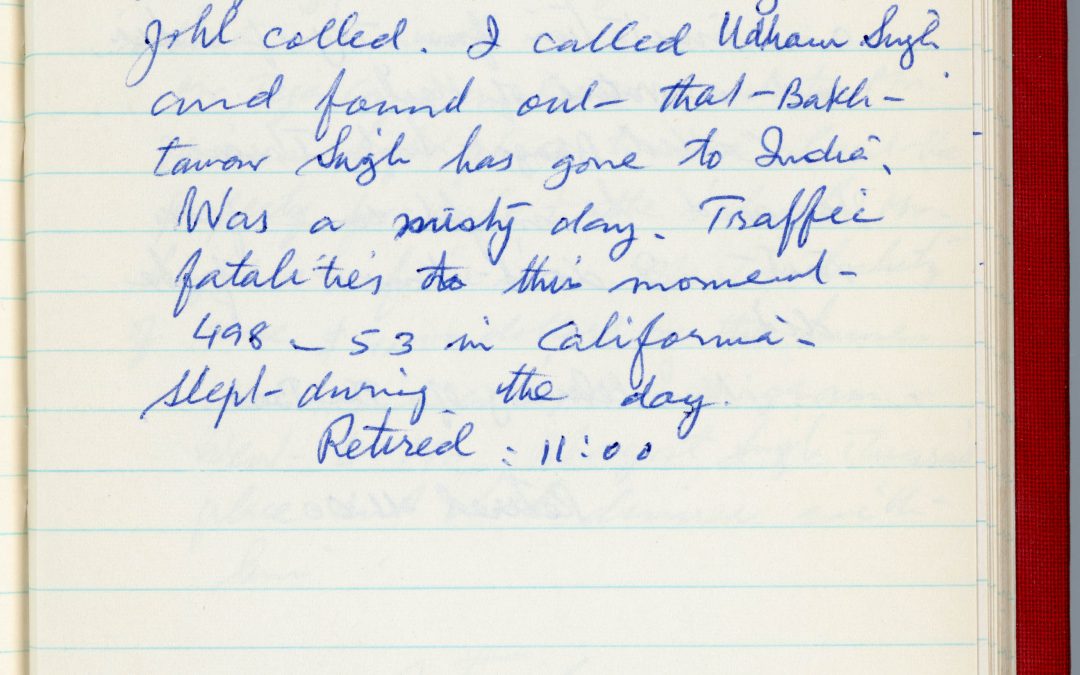 Johl called. I called Udham Singh
and found out that Bakh-
tawar Singh has gone to India.
Was a misty day. Traffic
fatalities to this moment
498 - 53 in California -
slept during the day.
Retired : 11:00